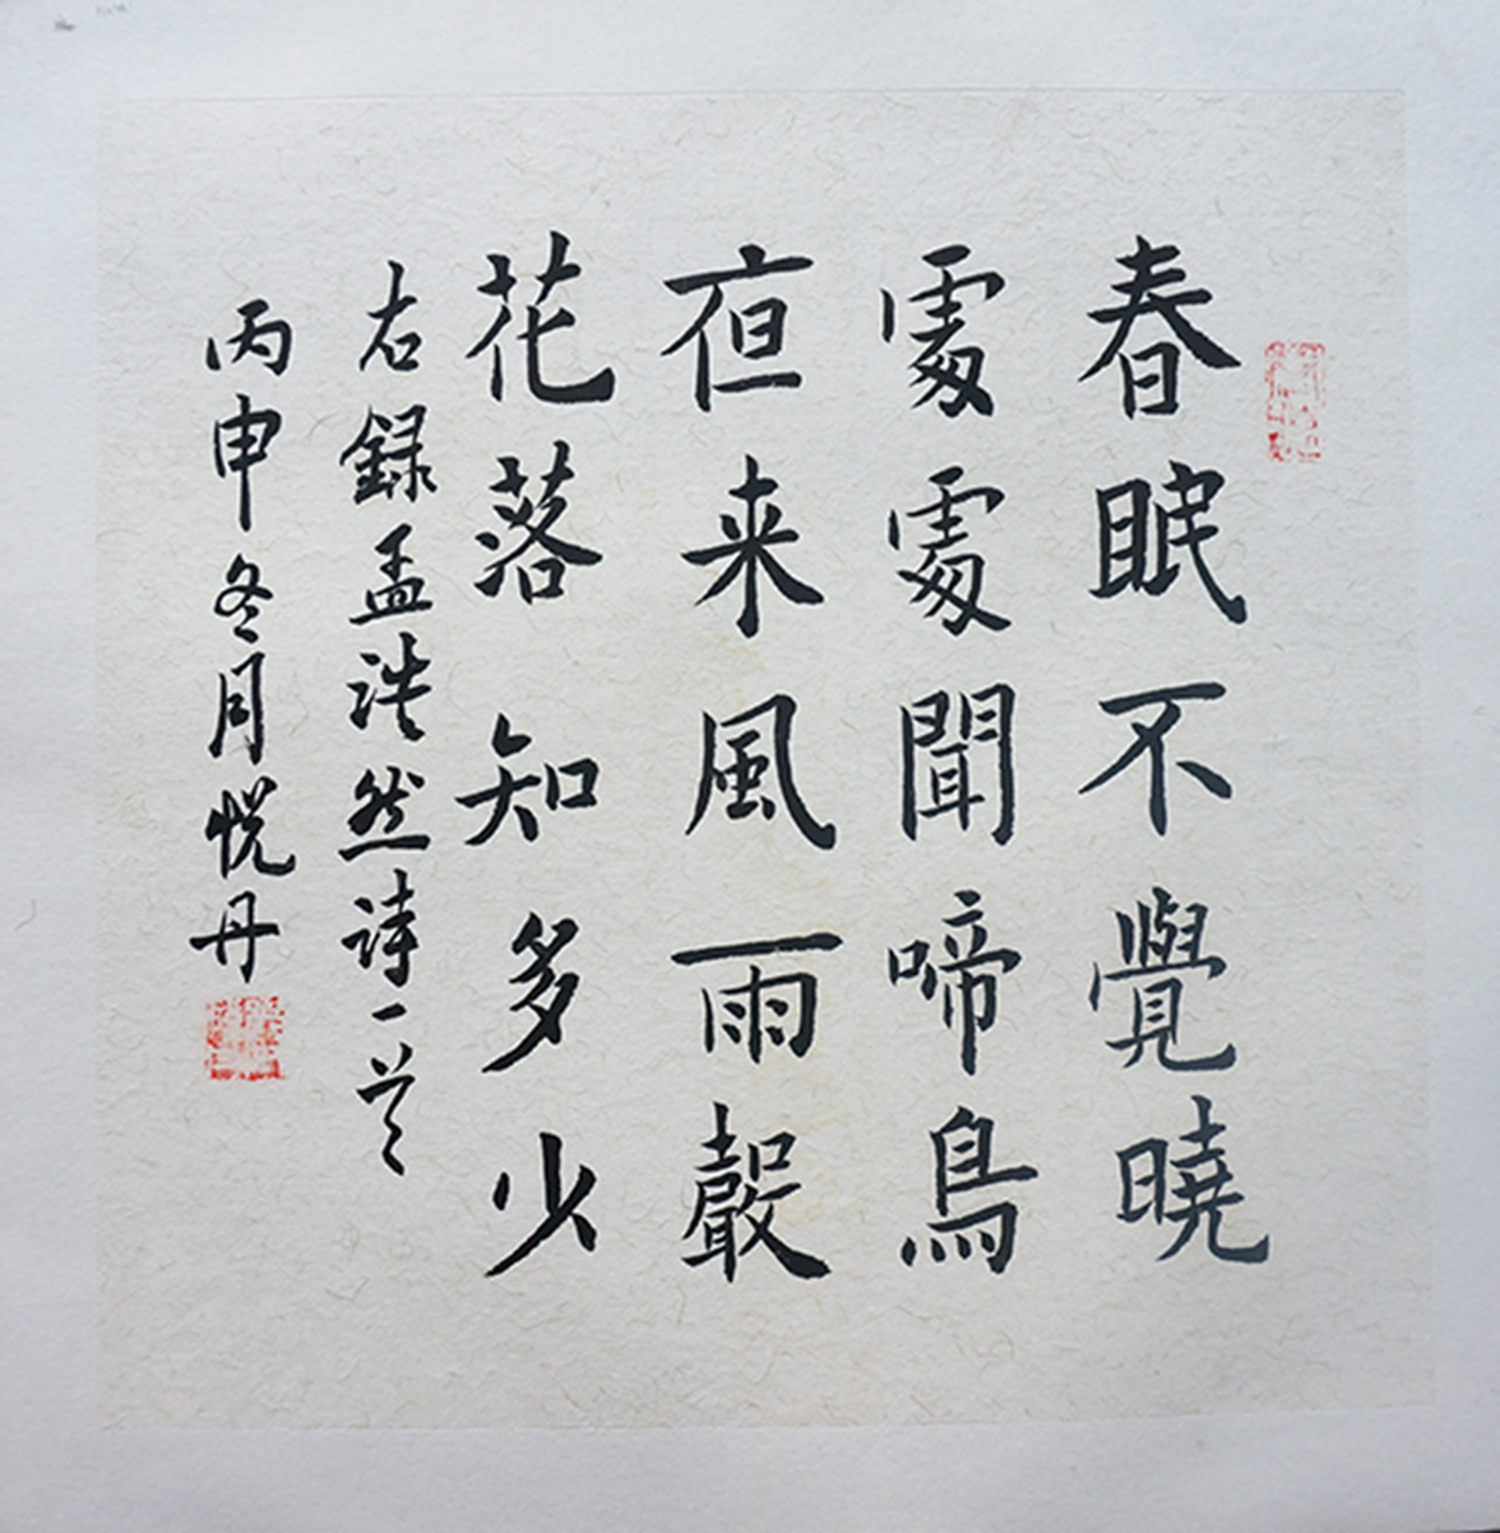 春眠不覺曉
處處聞啼鳥
夜来風雨聲
花落知多少
右録孟浩然诗一首
丙申冬月悦丹